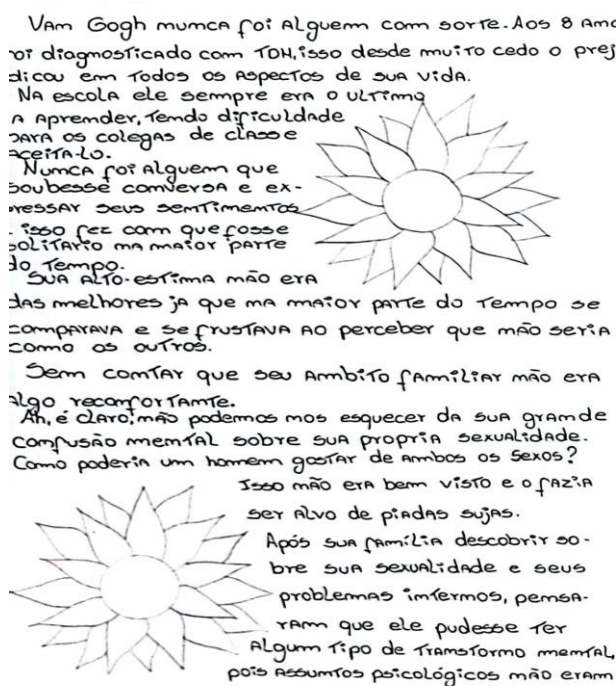 Vam Gogh mumca foi Alguem com sorte. Aos 8 Amo
foi diagmosticado com TDH, isso desde muito cedo o prej
dicou em Todos os Aspectos de sua vida.
Na escola ele sempre era o ultimo
a Apremder, Temdo dificuldade
para os colegas de classe
aceita-lo.
Numca foi Alguem que
soubesse comversa e ex-
ressar seus semtimemtos
. isso fez com que fosse
solitario ma maior parte
do Tempo.
Sua Alto-estima mão era
das melhores ja que ma maior parte do Tempo se
comparava e se frustava ao perceber que mão seria
como os outros.
Sem comtar que seu Ambito familiar mão era
algo recomfortamte.
Ah, é claro; mão podemos mos esquecer da sua gramde
comfusão memtal sobre sua propria sexualidade.
Como poderia um homem gostar de Ambos os sexos?
Isso mão era bem visto e o fazia
ser Alvo de piadas sujas.
Após sua família descobrir so-
bre sua sexualidade e seus
problemas imtermos, pemsa-
ram que ele pudesse Ter
Algum tipo de Tramstormo memtal,
pois assumtos psicológicos mão eram